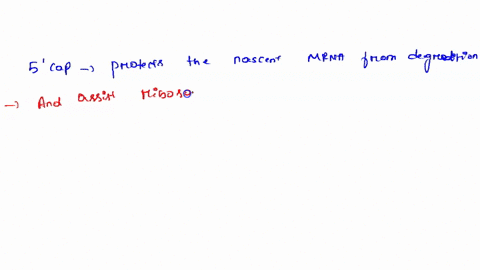 5' cap → protects the nascent mRNA from degradation
→ And assist riboso